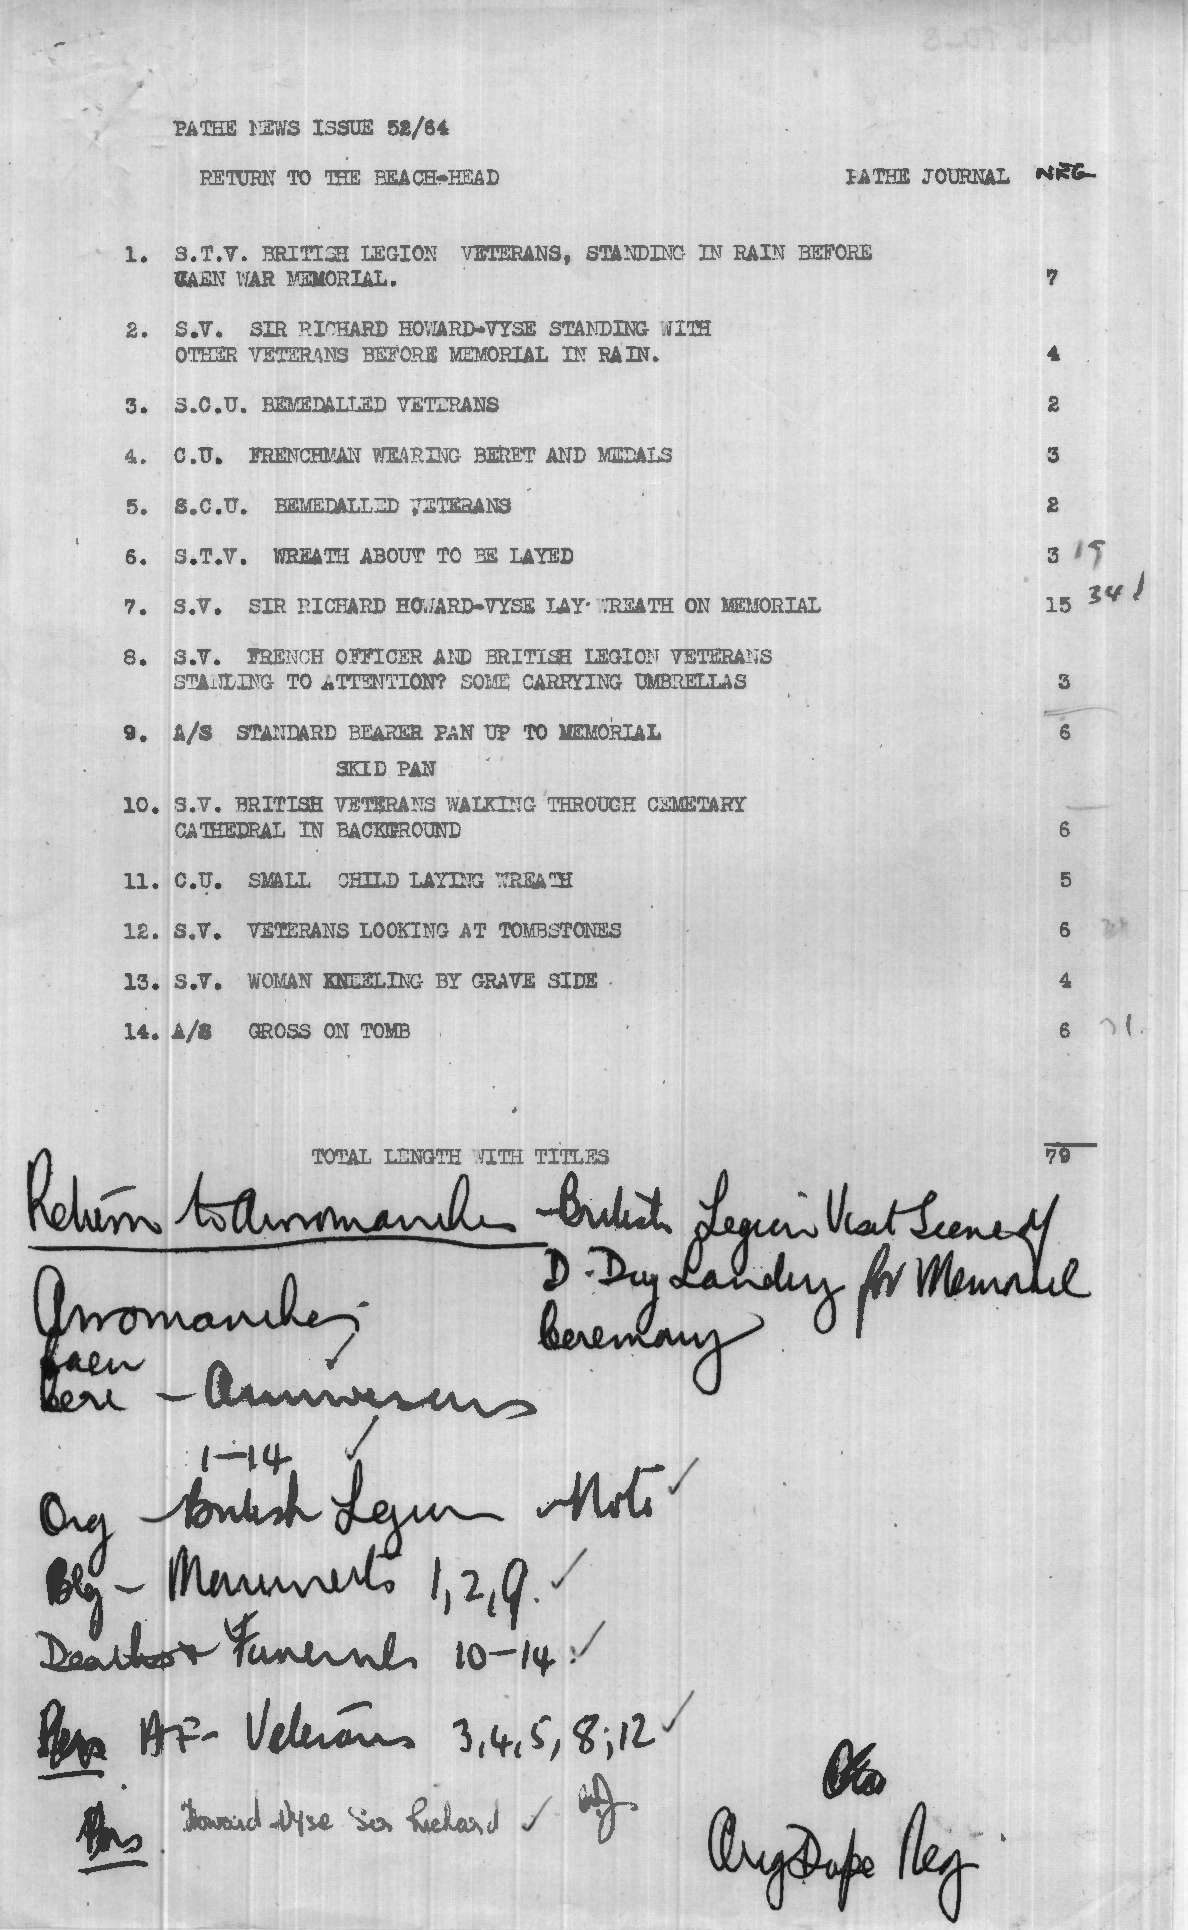 PATHE NEWS ISSUE 52/64
RETURN TO THE BEACH-HEAD PATHE JOURNAL NEG
1. S.T.V. BRITISH LEGION VETERANS, STANDING IN RAIN BEFORE
CAEN WAR MEMORIAL. 7
2. S.V. SIR RICHARD HOWARD-VYSE STANDING WITH
OTHER VETERANS BEFORE MEMORIAL IN RAIN. 4
3. S.C.U. BEMEDALLED VETERANS 2
4. C.U. FRENCHMAN WEARING BERET AND MEDALS 3
5. S.C.U. BEMEDALLED VETERANS 2
6. S.T.V. WREATH ABOUT TO BE LAYED 3 19
7. S.V. SIR RICHARD HOWARD-VYSE LAY WREATH ON MEMORIAL 15 34
8. S.V. FRENCH OFFICER AND BRITISH LEGION VETERANS
STANDING TO ATTENTION? SOME CARRYING UMBRELLAS 3
9. A/S STANDARD BEARER PAN UP TO MEMORIAL 6
SKID PAN
10. S.V. BRITISH VETERANS WALKING THROUGH CEMETARY
CATHEDRAL IN BACKGROUND 6
11. C.U. SMALL CHILD LAYING WREATH 5
12. S.V. VETERANS LOOKING AT TOMBSTONES 6
13. S.V. WOMAN KNEELING BY GRAVE SIDE 4
14. A/S GROSS ON TOMB 6
TOTAL LENGTH WITH TITLES 79
Return to Arromanches - British Legion Visit Scene of
D-Day Landing for Memorial
Ceremony
Arromanches
Caen
Cere - Anniversarys
1-14
Org - British Legion - Note
Blg - Monuments 1,2,9.
Deaths & Funerals 10-14
Pers AF - Veterans 3,4,5,8,12
Pers Howard-Vyse Sir Richard
Orig Dupe Neg